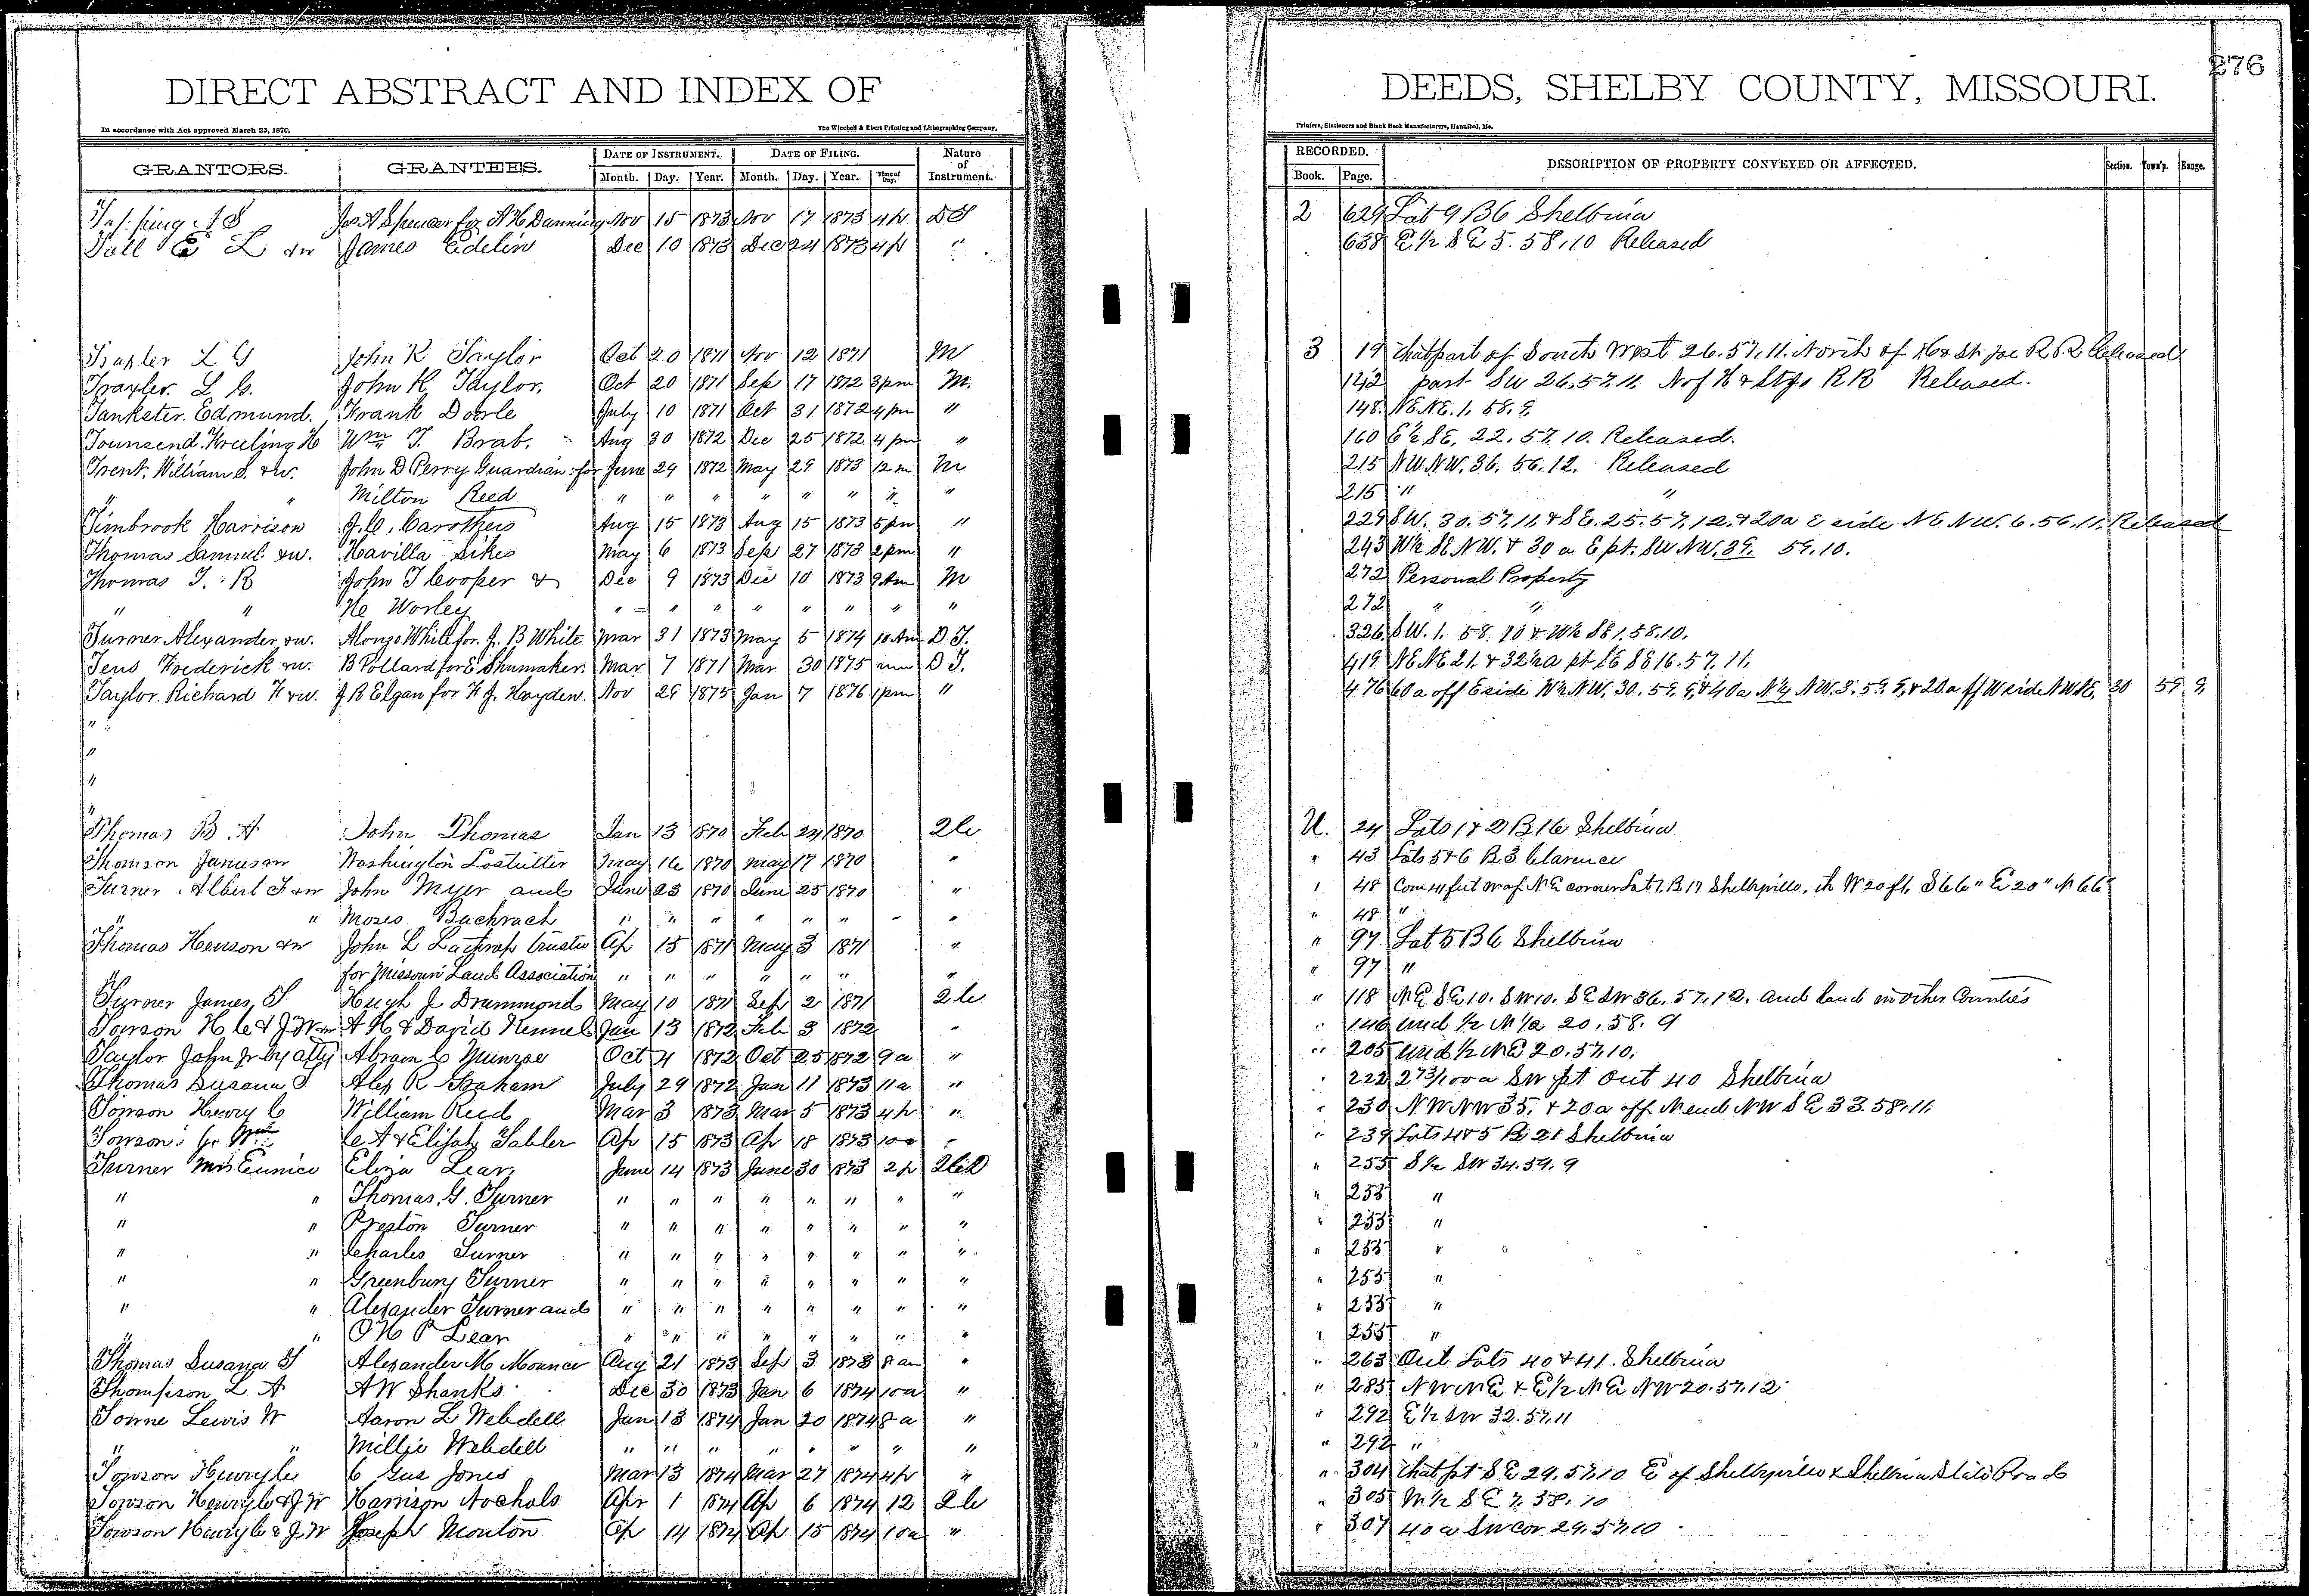 276
DIRECT ABSTRACT AND INDEX OF DEEDS, SHELBY COUNTY, MISSOURI.
In accordance with Act approved March 25, 1870. The Winchell & Ebert Printing and Lithographing Company, Printers, Stationers and Blank Book Manufacturers, Hannibal, Mo.
GRANTORS. GRANTEES. DATE OF INSTRUMENT. DATE OF FILING. Nature of Instrument. RECORDED. DESCRIPTION OF PROPERTY CONVEYED OR AFFECTED. Section. Town'p. Range.
Month. Day. Year. Month. Day. Year. Time of Day. Book. Page.
Jos A Spencer for A H Dunning Nov 15 1873 Nov 17 1873 4p DT 2 629 Lot 9 B6 Shelbina
E L &w James Edelin Dec 10 1873 Dec 24 1873 4p " 638 E½ SE 5.58.10 Released
L G John K Taylor Oct 20 1871 Nov 12 1871 M 3 19 that part of South West 26.57.11. North of H & St. Joe R R Released
Traxler. L. G. John K Taylor. Oct 20 1871 Sep 17 1872 3pm M. 142 part SW 26.57.11. N of H & St Jo RR Released.
Tankster. Edmund. Frank Doole July 10 1871 Oct 31 1872 4pm " 148. NE NE. 1. 58. 9.
Townsend. H Wm T. Brab. Aug 30 1872 Dec 25 1872 4pm " 160 E½ SE. 22. 57. 10. Released.
Trent. William S. &w. John D Perry Guardian for June 24 1872 May 29 1873 12 m M 215 NW NW. 36. 56. 12. Released
" " Milton Reed " " " " " " " " 215 " "
Timbrook Harrison J. C. Carothers Aug 15 1873 Aug 15 1873 5pm " 229 SW. 30. 57. 11. & SE. 25. 57. 12. & 20a E side NE NW. 6. 56. 11. Released
Thomas Samuel &w. Havilla Sikes May 6 1873 Sep 27 1873 2pm " 243 W½ SE NW. & 30 a E pt. SW NW. 39. 59. 10.
Thomas T. R John T Cooper & Dec 9 1873 Dec 10 1873 9 Am M 272 Personal Property
" " Worley " " " " " " " " 272 " "
Turner Alexander &w. Alonzo White for J. B White Mar 31 1873 May 5 1874 10 Am D T. 326 SW. 1. 58. 10 & W½ SE 1. 58. 10.
Frederick &w. B Pollard for E Shumaker. Mar 7 1871 Mar 30 1875 D T. 419 NE NE 21. & 32½a pt SE SE 16. 57. 11.
Taylor. Richard H &w. J B Elgan for H J. Hayden. Nov 29 1875 Jan 7 1876 1pm " 476 60 a off E side W½ NW. 30. 59. 9. & 40 a N½ NW. 3. 59. 9. & 20a off W side NW SE. 30 59 9
"
"
"
"
Thomas B A John Thomas Jan 13 1870 Feb 24 1870 2c U. 24 Lots 1 & 2 B 16 Shelbina
Thomson James &w Washington Lostutter May 16 1870 May 17 1870 " " 43 Lots 5 & 6 B 3 Clarence
Turner Albert F &w John Myer and June 23 1870 June 25 1870 " " 48 Com 41 feet W of NE corner Lot 1. B 17 Shelbyville, th W 20 ft, S 66 " E 20 " N 66 "
" " Moses Bachrach " " " " " " " " 48 "
Thomas Henson &w John L Lathrop trustee Ap 15 1871 May 3 1871 " " 97. Lot 5 B 6 Shelbina
" for Missouri Land Association " " " " " " " " 97 "
Turner James T Hugh J Drummond May 10 1871 Sep 2 1871 2c " 118 NE SE 10. SW 10. SE SW 36. 57. 12. and land in other Counties
Towson H C & J W &w A H & David Kennel Jan 13 1872 Feb 3 1872 " " 146 und ½ N½ 20. 58. 9
Taylor John Jr by atty Abram C Munroe Oct 4 1872 Oct 25 1872 9a " " 205 und ½ NE 20. 57. 10.
Thomas Susana T Alex R Graham July 29 1872 Jan 11 1873 11a " " 222 2 73/100 a SW pt Out 40 Shelbina
Towson Henry C William Reed Mar 3 1873 Mar 5 1873 4p " " 230 NW NW 35. & 20 a off N end NW SE 33. 58. 11.
Towson Wm C A & Elijah Tabler Ap 15 1873 Ap 18 1873 10a " " 239 Lots 4 & 5 B 21 Shelbina
Turner Mrs Eunice Eliza Lear, June 14 1873 June 30 1873 2p 2cD " 255 S½ SW 34. 59. 9
" " Thomas. G. Turner " " " " " " " " " 255 "
" " Preston Turner " " " " " " " " " 255 "
" " Charles Turner " " " " " " " " " 255 "
" " Greenbury Turner " " " " " " " " " 255 "
" " Alexander Turner and " " " " " " " " " 255 "
" " O H P Lear " " " " " " " " " 255 "
Thomas Susana T Alexander M Mounce Aug 21 1873 Sep 3 1873 8 am " " 263 Out Lots 40 & 41. Shelbina
Thompson L A A W Shanks Dec 30 1873 Jan 6 1874 10a " " 285 NW NE & E½ NE NW 20. 57. 12
Towne Lewis W Aaron L Webdell Jan 13 1874 Jan 20 1874 8a " " 292 E½ SW 32. 57. 11
" " Millie Webdell " " " " " " " " " 292 "
Towson Henry C C Gus Jones Mar 13 1874 Mar 27 1874 4p " " 304 that pt SE 29. 57. 10 E of Shelbyville & Shelbina State Road
Towson Henry C & J W Harrison Nochols Apr 1 1874 Ap 6 1874 12 2c " 305 N½ SE 7. 58. 10
Towson Henry C & J. W Joseph Moulton Ap 14 1874 Ap 15 1874 10a " " 307 40 a SW cor 29. 57. 10